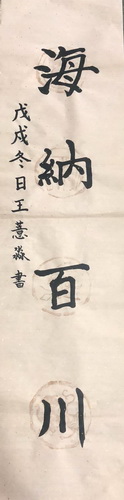 海納百川
戊戌冬日王薏淼書